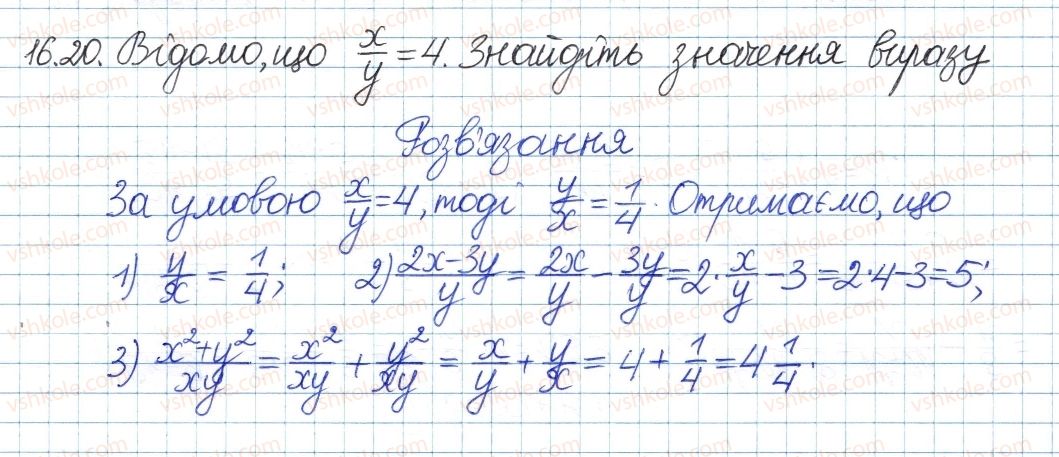 16.20. Відомо, що x/y = 4. Знайдіть значення виразу
Розв'язання
За умовою x/y = 4, тоді y/x = 1/4. Отримаємо, що
1) y/x = 1/4; 2) (2x-3y)/y = 2x/y - 3y/y = 2·x/y - 3 = 2·4-3 = 5;
3) (x²+y²)/xy = x²/xy + y²/xy = x/y + y/x = 4 + 1/4 = 4 1/4.